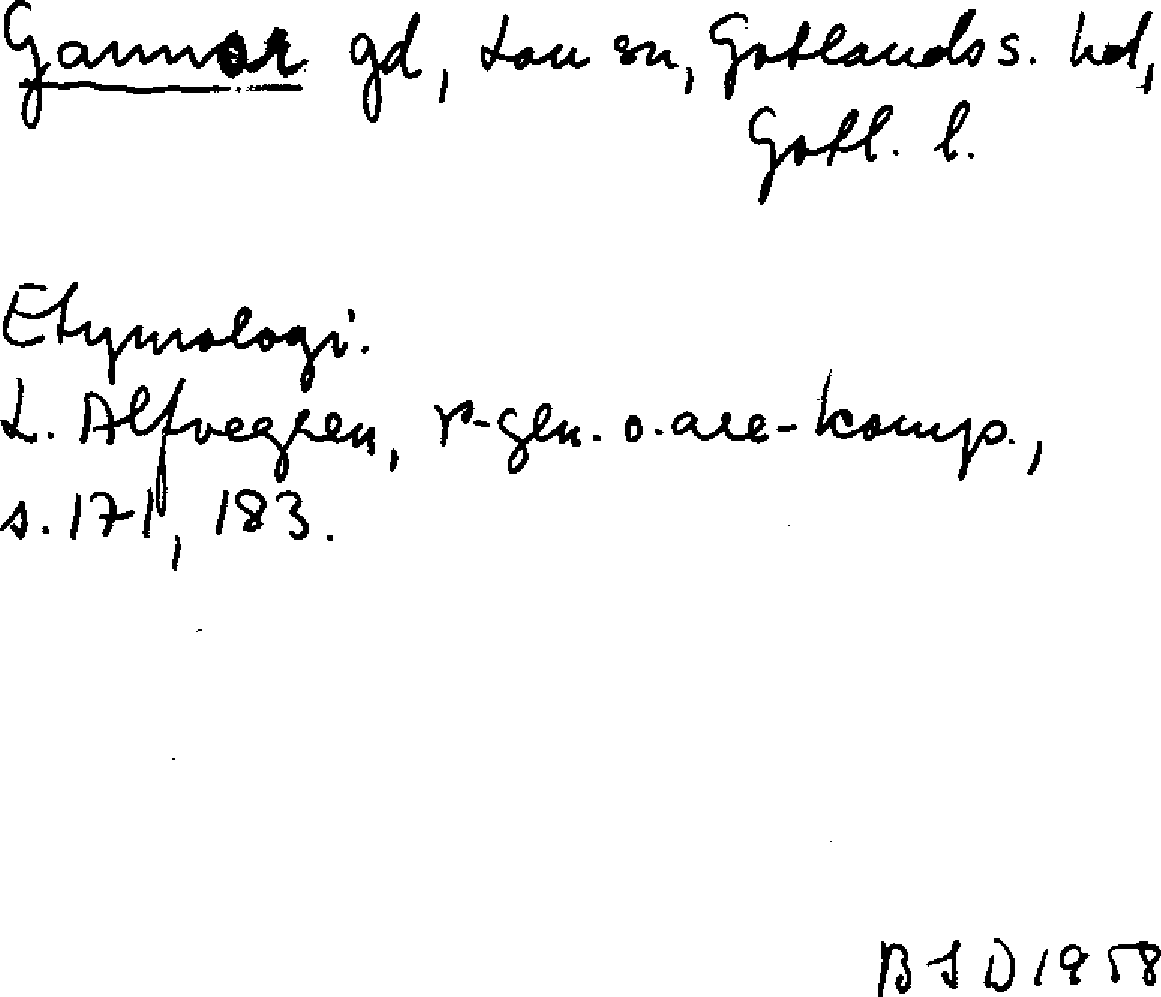 Gannor gd, Lau sn, Gotlands s. hd,
Gotl. l.
Etymologi.
L. Alfvegren, r-gen. o. are-komp.,
s. 171, 183.
B J D 1958